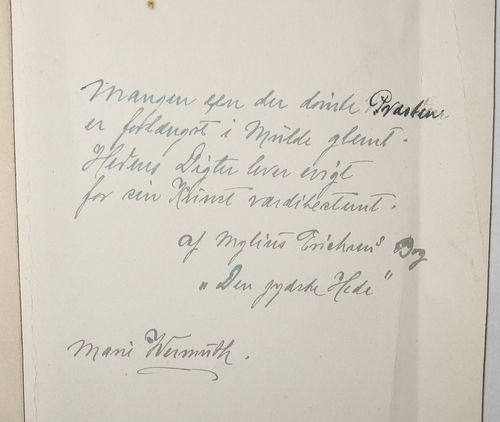 Mangen een der danske Præster
er forlængst i Mulde glemt.
Hedens Digter lever evigt
for sin Kunst værdibestemt.
af Mylius Erichsens Bog
"Den jydske Hede"
Marie Wermuth.